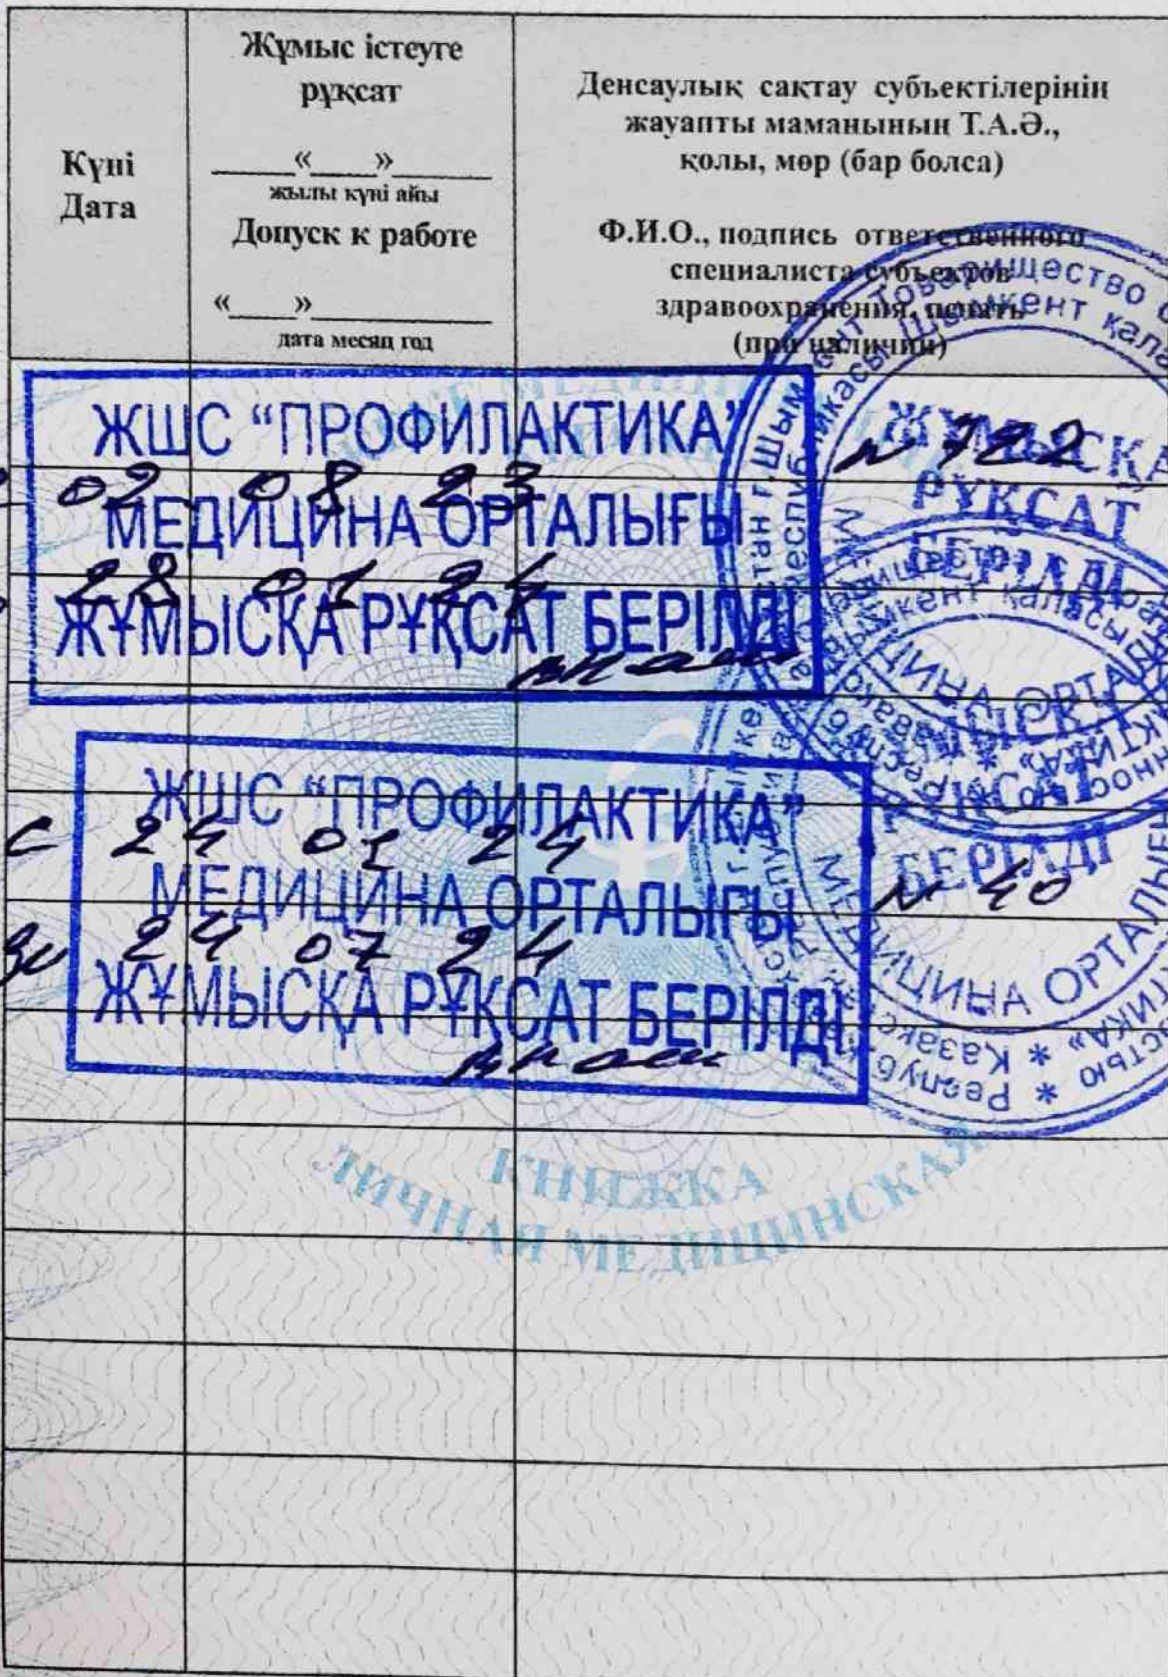 Күні
Дата
Жұмыс істеуге
рұқсат
____«____»______
жылы күні айы
Допуск к работе
«____»___________
дата месяц год
Денсаулық сақтау субъектілерінің
жауапты маманының Т.А.Ә.,
қолы, мөр (бар болса)
Ф.И.О., подпись ответственного
специалиста субъектов
здравоохранения, печать
(при наличии)
ЖШС "ПРОФИЛАКТИКА"
02 08 23
МЕДИЦИНА ОРТАЛЫҒЫ
28 01 24
ЖҰМЫСҚА РҰҚСАТ БЕРІЛДІ
№ 722
ЖҰМЫСҚА
РҰҚСАТ
БЕРІЛДІ
ЖШС "ПРОФИЛАКТИКА"
с 24 01 24
МЕДИЦИНА ОРТАЛЫҒЫ
24 07 24
ЖҰМЫСҚА РҰҚСАТ БЕРІЛДІ
№ 40
БЕРІЛДІ
МЕДИЦИНА ОРТАЛЫҒЫ
КНИЖКА
ЛИЧНАЯ МЕДИЦИНСКАЯ